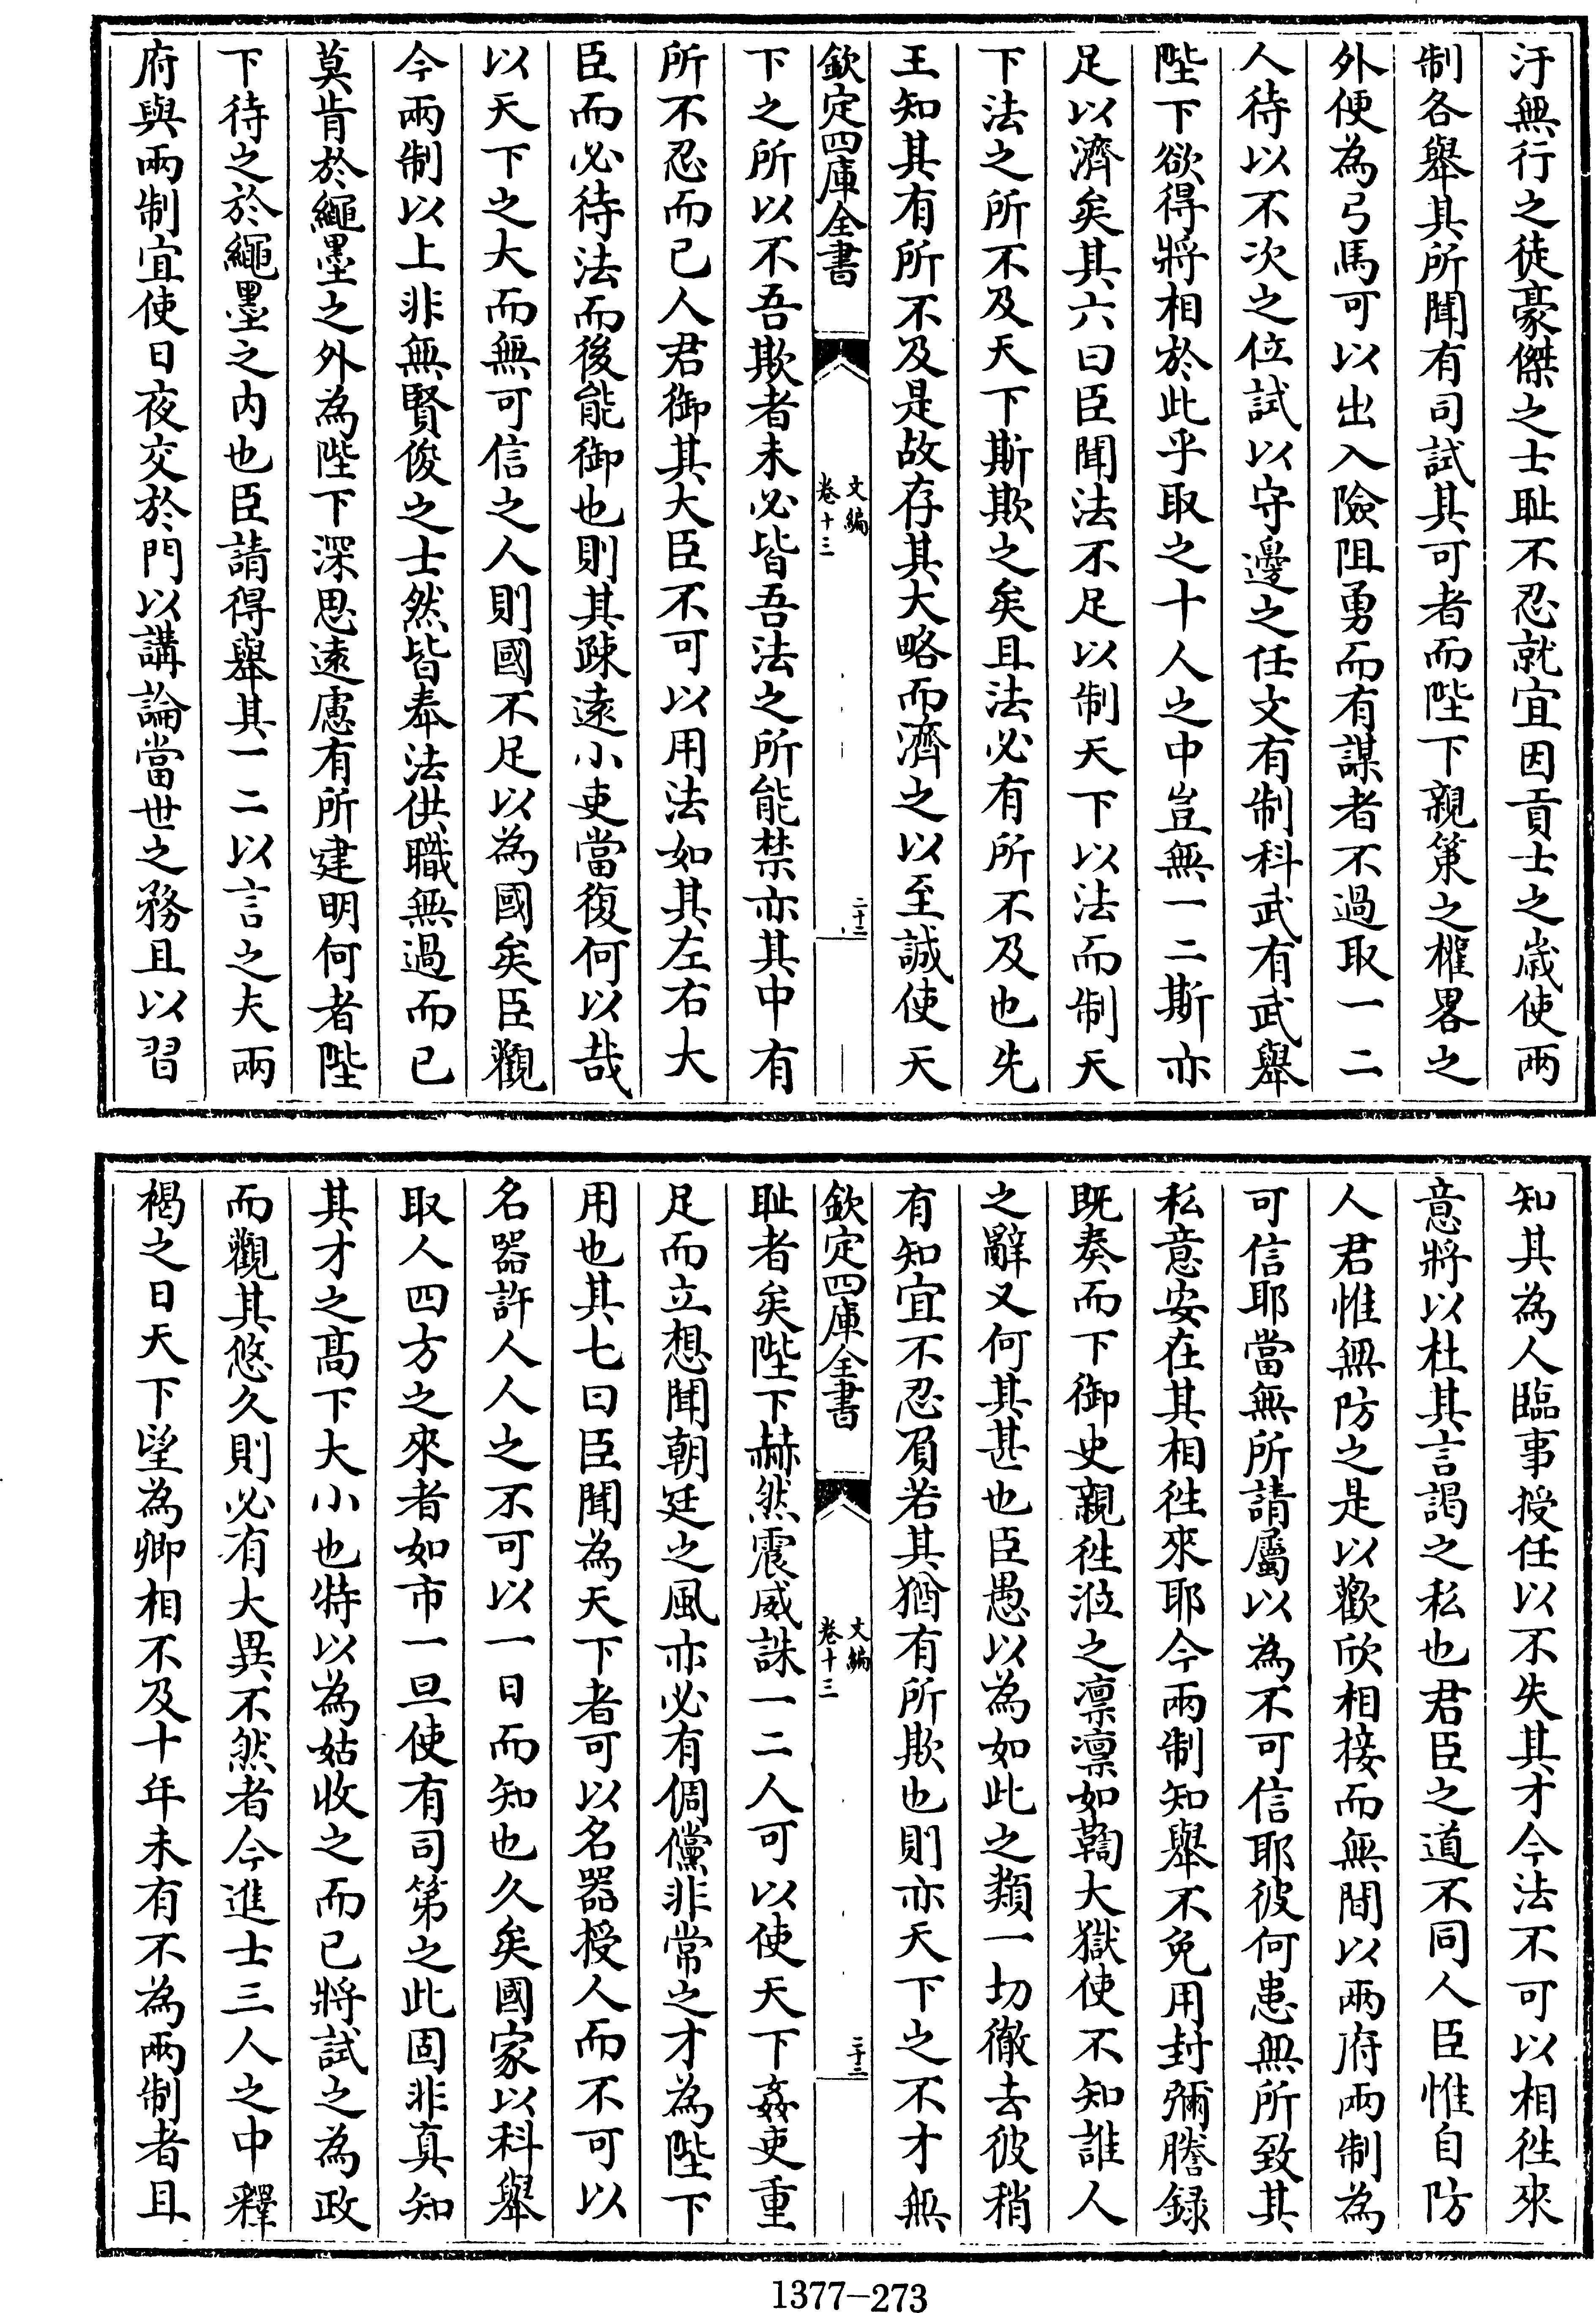 汙無行之徒豪傑之士耻不忍就宜因貢士之歳使兩
制各舉其所聞有司試其可者而陛下親策之權畧之
外便為弓馬可以出入險阻勇而有謀者不過取一二
人待以不次之位試以守邊之任文有制科武有武舉
陛下欲得將相於此乎取之十人之中豈無一二斯亦
足以濟矣其六曰臣聞法不足以制天下以法而制天
下法之所不及天下斯欺之矣且法必有所不及也先
王知其有所不及是故存其大略而濟之以至誠使天
欽定四庫全書
文編
卷十三
二十二
下之所以不吾欺者未必皆吾法之所能禁亦其中有
所不忍而已人君御其大臣不可以用法如其左右大
臣而必待法而後能御也則其疎遠小吏當復何以哉
以天下之大而無可信之人則國不足以為國矣臣觀
今兩制以上非無賢俊之士然皆奉法供職無過而已
莫肯於繩墨之外為陛下深思遠慮有所建明何者陛
下待之於繩墨之内也臣請得舉其一二以言之夫兩
府與兩制宜使日夜交於門以講論當世之務且以習
知其為人臨事授任以不失其才今法不可以相徃來
意將以杜其言謁之私也君臣之道不同人臣惟自防
人君惟無防之是以歡欣相接而無間以兩府兩制為
可信耶當無所請屬以為不可信耶彼何患無所致其
私意安在其相徃來耶今兩制知舉不免用封彌謄録
既奏而下御史親徃涖之凛凛如鞫大獄使不知誰人
之辭又何其甚也臣愚以為如此之類一切徹去彼稍
有知宜不忍負若其猶有所欺也則亦天下之不才無
欽定四庫全書
文編
卷十三
二十三
耻者矣陛下赫然震威誅一二人可以使天下姦吏重
足而立想聞朝廷之風亦必有倜儻非常之才為陛下
用也其七曰臣聞為天下者可以名器授人而不可以
名器許人人之不可以一日而知也久矣國家以科舉
取人四方之來者如市一旦使有司第之此固非真知
其才之髙下大小也特以為姑收之而已將試之為政
而觀其悠久則必有大異不然者今進士三人之中釋
褐之日天下望為卿相不及十年未有不為兩制者且
1377-273